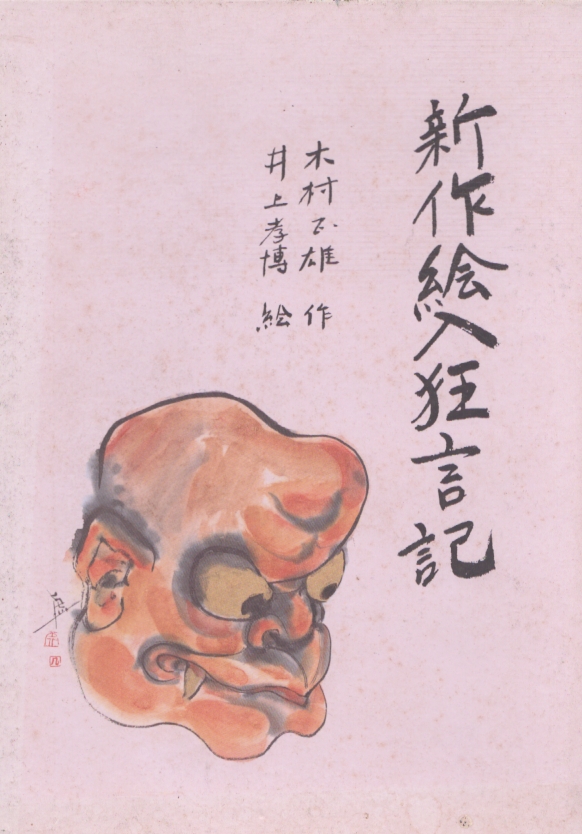 新作絵入狂言記
木村正雄 作
井上孝博 絵